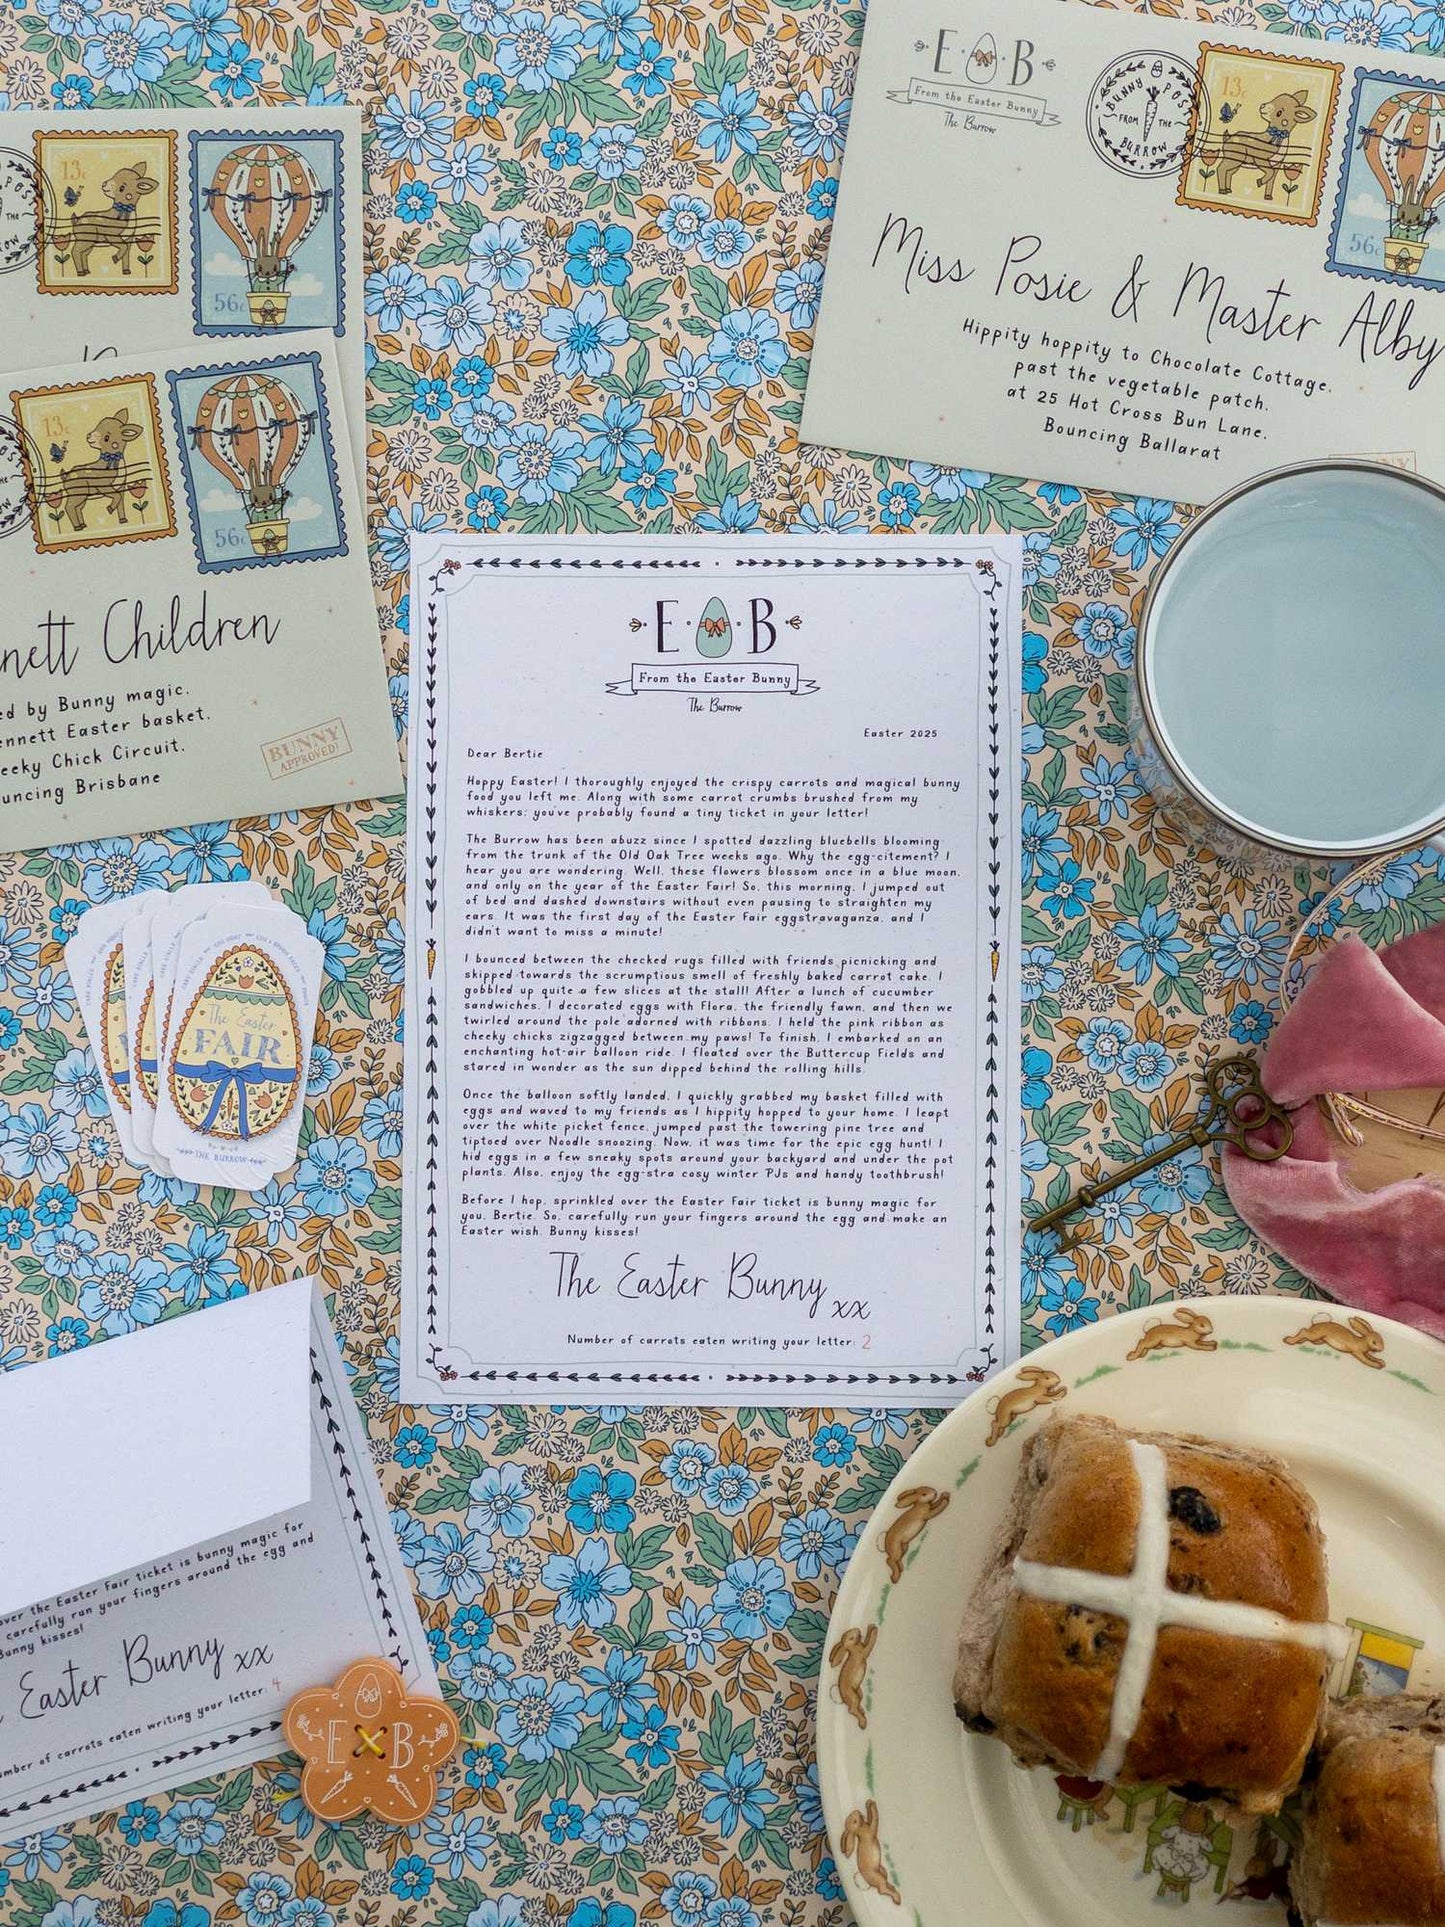 E B
From the Easter Bunny
The Burrow
BUNNY POST
FROM THE
BURROW
13c
56c
Miss Posie & Master Alby
Hippity hoppity to Chocolate Cottage,
past the vegetable patch,
at 25 Hot Cross Bun Lane,
Bouncing Ballarat
13c
56c
POST
THE
13c
56c
Children
by Bunny magic.
Easter basket,
Chick Circuit,
Brisbane
BUNNY
APPROVED!
E B
From the Easter Bunny
The Burrow
Easter 2025
Dear Bertie
Hoppy Easter! I thoroughly enjoyed the crispy carrots and magical bunny
food you left me. Along with some carrot crumbs brushed from my
whiskers; you've probably found a tiny ticket in your letter!
The Burrow has been abuzz since I spotted dazzling bluebells blooming
from the trunk of the Old Oak Tree weeks ago. Why the egg-citement? I
hear you are wondering. Well, these flowers blossom once in a blue moon,
and only on the year of the Easter Fair! So, this morning, I jumped out
of bed and dashed downstairs without even pausing to straighten my
ears. It was the first day of the Easter Fair eggstravaganza, and I
didn't want to miss a minute!
I bounced between the checked rugs filled with friends picnicking and
skipped towards the scrumptious smell of freshly baked carrot cake. I
gobbled up quite a few slices at the stall! After a lunch of cucumber
sandwiches, I decorated eggs with Flora, the friendly fawn, and then we
twirled around the pole adorned with ribbons. I held the pink ribbon as
cheeky chicks zigzagged between my paws! To finish, I embarked on an
enchanting hot-air balloon ride. I floated over the Buttercup Fields and
stared in wonder as the sun dipped behind the rolling hills.
Once the balloon softly landed, I quickly grabbed my basket filled with
eggs and waved to my friends as I hippity hopped to your home. I leapt
over the white picket fence, jumped past the towering pine tree and
tiptoed over Noodle snoozing. Now, it was time for the epic egg hunt! I
hid eggs in a few sneaky spots around your backyard and under the pot
plants. Also, enjoy the egg-stra cosy winter PJs and handy toothbrush!
Before I hop, sprinkled over the Easter Fair ticket is bunny magic for
you, Bertie. So, carefully run your fingers around the egg and make an
Easter wish. Bunny kisses!
The Easter Bunny xx
Number of carrots eaten writing your letter: 2
The Easter
FAIR
THE BURROW
over the Easter Fair ticket is bunny magic for
carefully run your fingers around the egg and
Bunny kisses!
Easter Bunny xx
of carrots eaten writing your letter: 4
E B